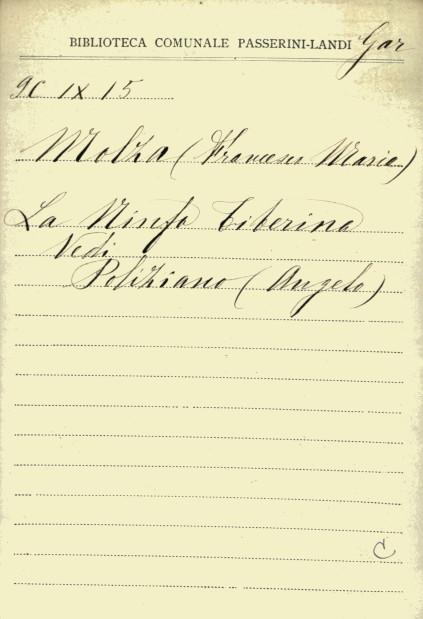 BIBLIOTECA COMUNALE PASSERINI-LANDI Gar
9C IX 15
Molza (Francesco Maria)
La Ninfa Tiberina
Vedi
Poliziano (Angelo)
C